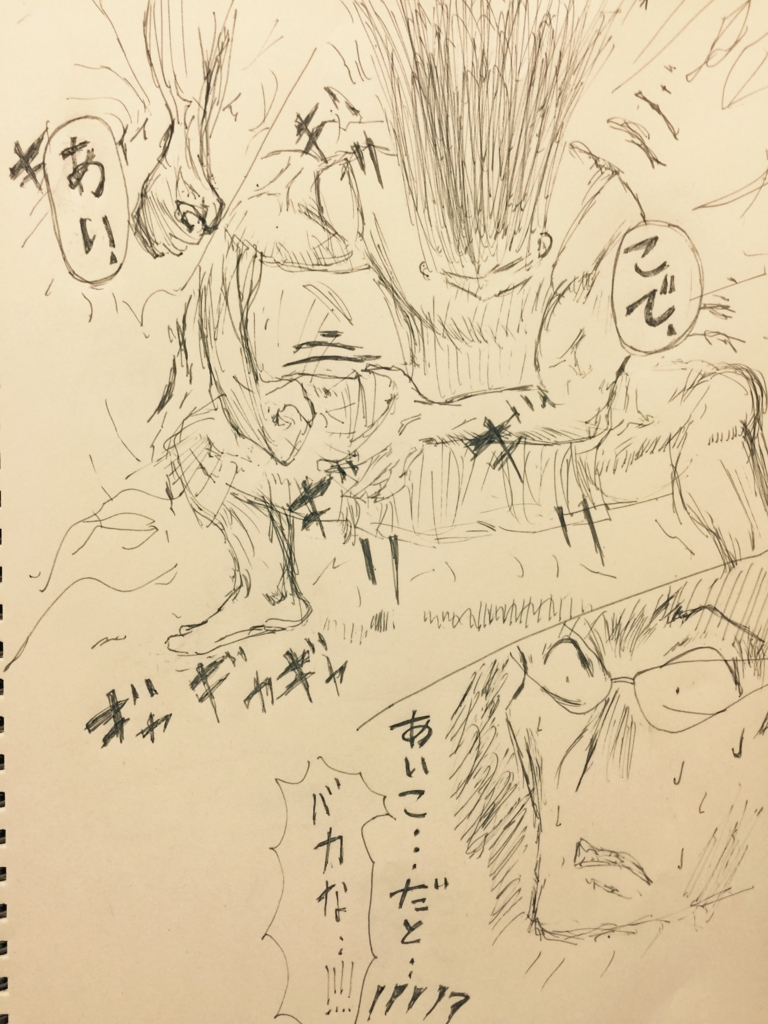 あい、
こで、
ギ
ギリ
ギリ
ギリ
ギャギャギャ
あいこ・・・だと・・!!!!!
バカな・・!!!!